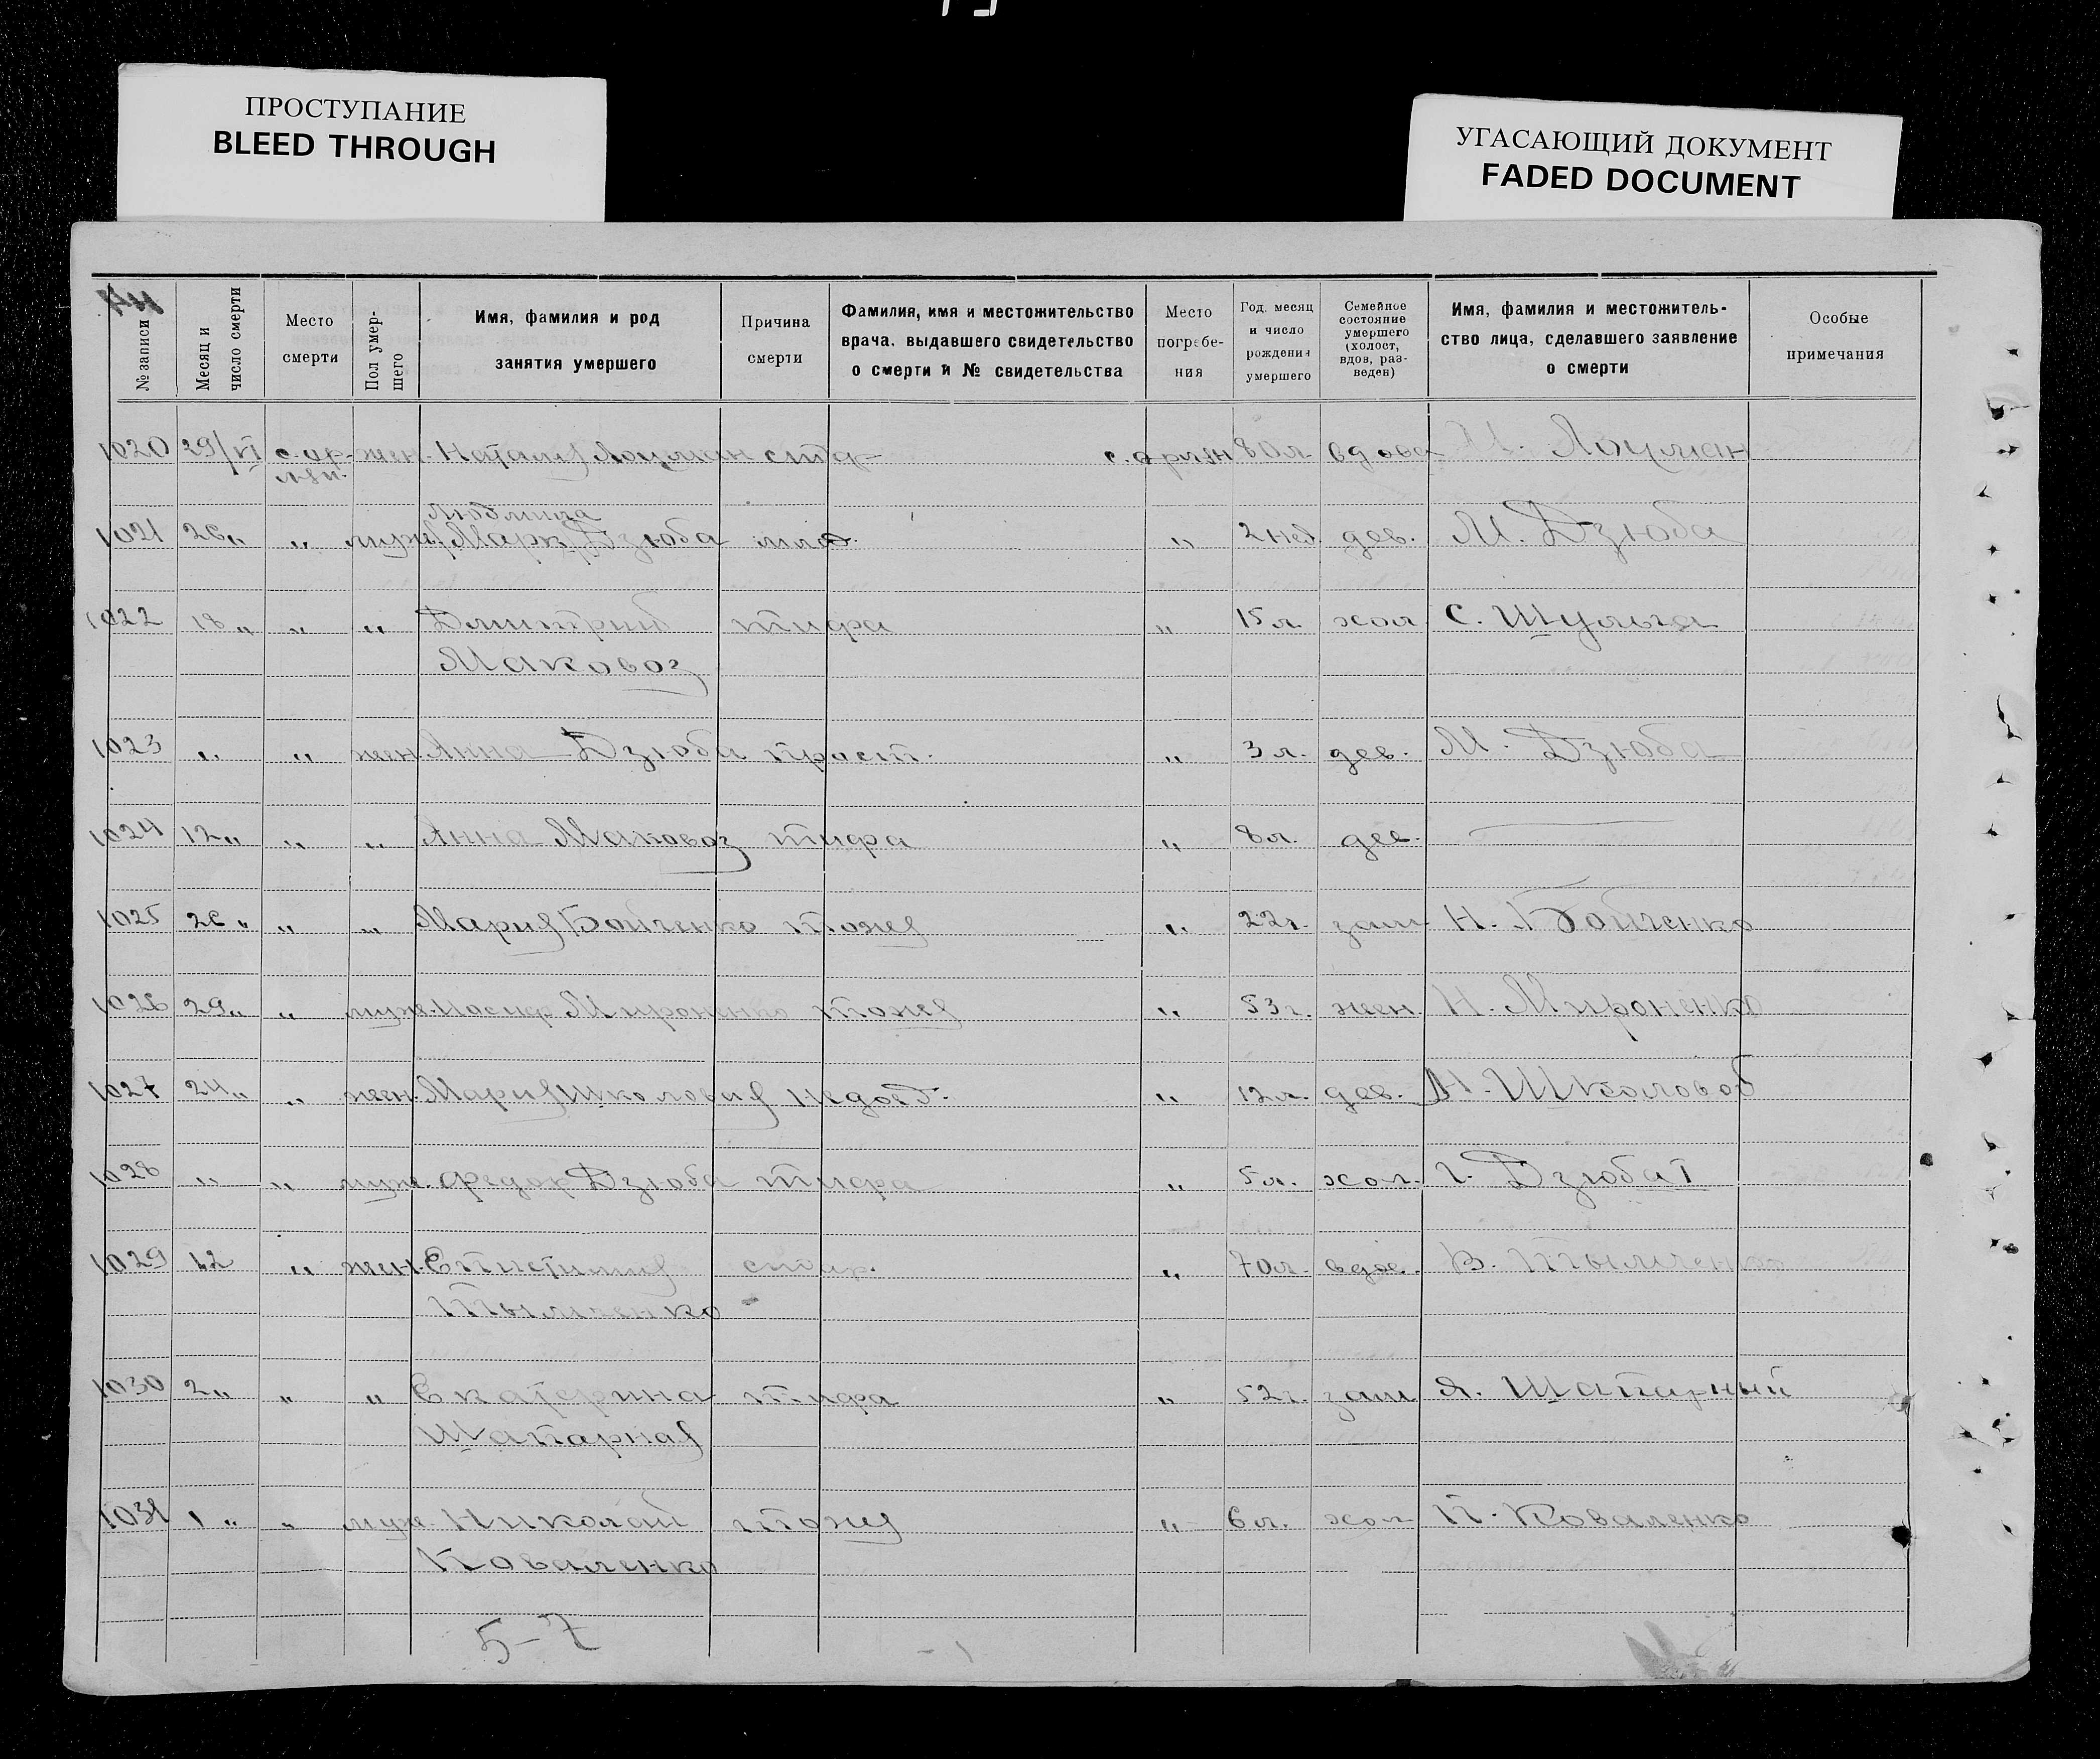 ПРОСТУПАНИЕ
BLEED THROUGH
УГАСАЮЩИЙ ДОКУМЕНТ
FADED DOCUMENT
№ записи
Месяц и число смерти
Место смерти
Пол умер-шего
Имя, фамилия и род занятия умершего
Причина смерти
Фамилия, имя и местожительство врача, выдавшего свидетельство о смерти и № свидетельства
Место погребе-ния
Год, месяц и число рождения умершего
Семейное состояние умершего (холост, вдов, раз-веден)
Имя, фамилия и местожитель-ство лица, сделавшего заявление о смерти
Особые примечания
1020 29/VI жен. Наталия Лоцман 80 л. вдова М. Лоцман
Людмила
1021 26 " " муж. Марк Дзюба " 2 нед. дев. М. Дзюба
1022 18 " " " Дмитрий тифа " 15 л. хол С. Шульга
Маковоз
1023 " " жен. Анна Дзюба прост. " 3 л. дев. М. Дзюба
1024 12 " " " Анна Маковоз тифа " 8 л. дев.
1025 26 " " " Мария Бойченко тоже " 22 г. зам Н. Бойченко
1026 29 " " муж. Иосиф Мироненко тоже " 53 г. жен. Н. Мироненко
1027 24 " " жен. Мария Школовия недоед. " 12 л. дев. Школовой
1028 " " муж. Федор Дзюба тифа " 5 л. хол. Г. Дзюба
1029 12 " жен. Епистимия стар. " 70 л. вдов. В. Тымченко
Тымченко
1030 2 " " " Екатерина тифа " 52 г. зам Я. Шапарный
Шапарная
1031 1 " " муж. Николай тоже " 6 л. хол П. Коваленко
Коваленко
5-7